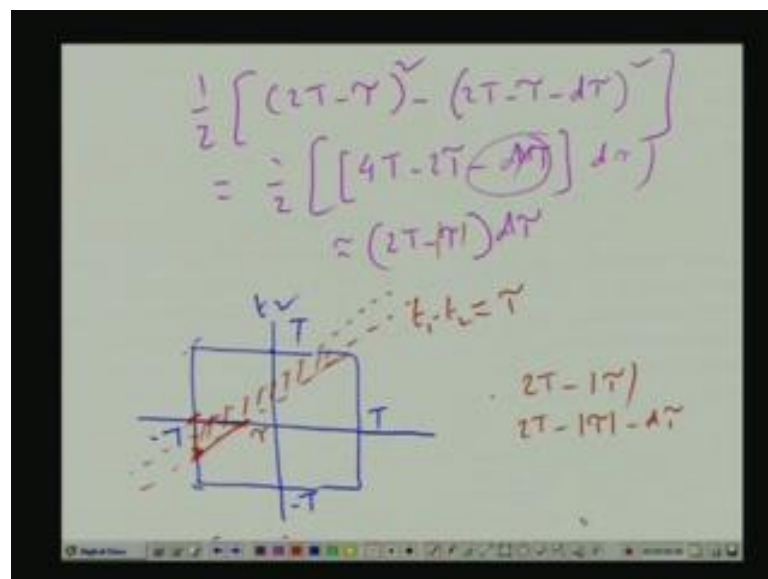 1/2 [ (2T-τ)² - (2T-τ-dτ)² ]
= 1/2 [ [4T-2τ-dτ] dτ ]
≈ (2T-|τ|) dτ
t₂
T
t₁-t₂ = τ
2T-|τ|
-T τ T
2T-|τ|-dτ
-T